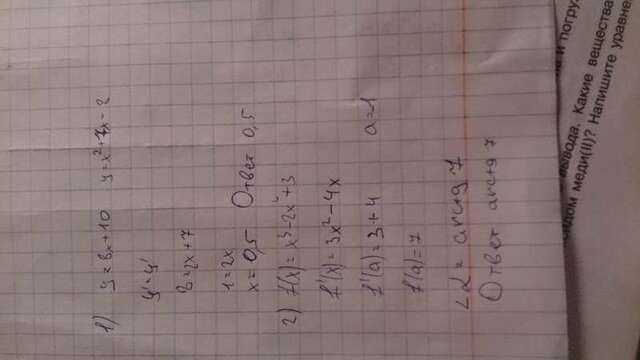 1) y = 8x + 10 y = x² + 7x - 2
y' = y'
8 = 2x + 7
1 = 2x
x = 0,5 Ответ 0,5
2) f(x) = x³ - 2x² + 3
f'(x) = 3x² - 4x
f'(a) = 3 + 4 a = -1
f'(a) = 7
∠α = arctg 7
Ответ arctg 7
вывода. Какие вещества
и погру
сидом меди(II)? Напишите уравне